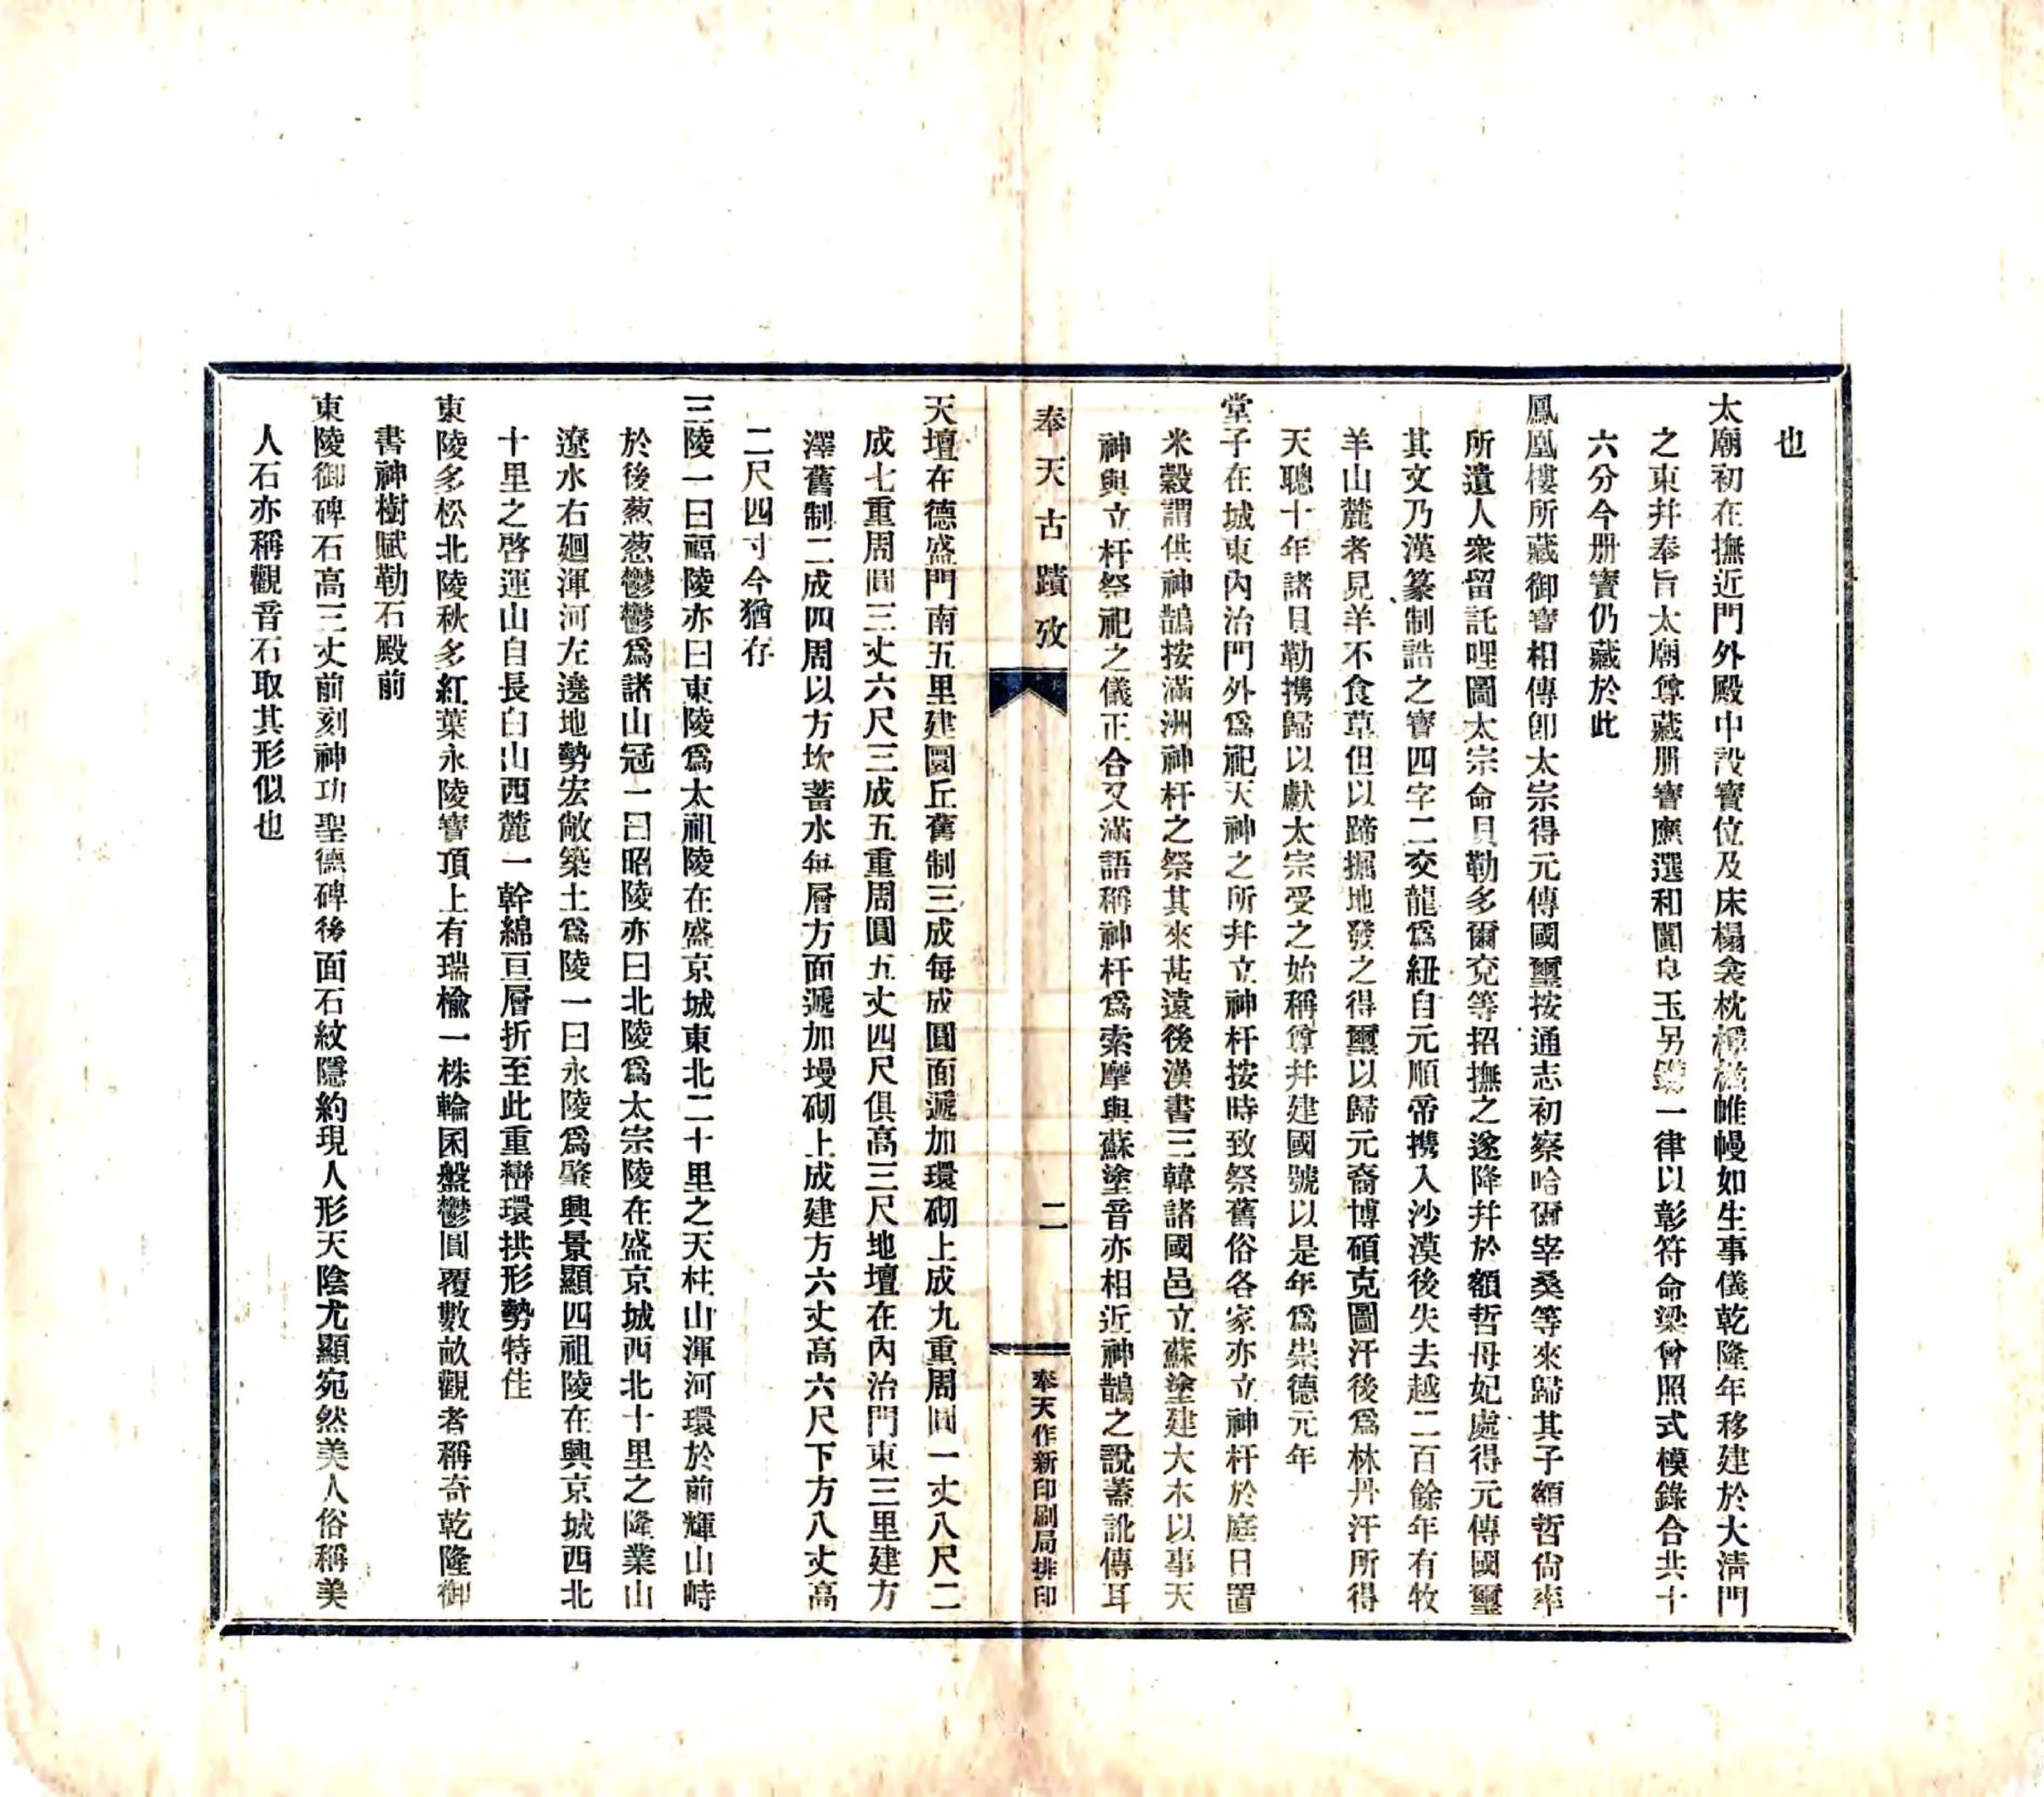 也
太廟初在撫近門外殿中設寶位及床榻衾枕椸帷幔如生事儀乾隆年移建於大清門
之東幷奉旨太廟尊藏册寶應選和闐良玉另鐫一律以彰符命梁曾照式模錄合共十
六分今册寶仍藏於此
鳳凰樓所藏御寶相傳卽太宗得元傳國璽按通志初察哈爾宰桑等來歸其子額哲尙率
所遺人衆留託哩圖太宗命貝勒多爾兗等招撫之遂降幷於額哲母妃處得元傳國璽
其文乃漢篆制誥之寶四字二交龍爲紐自元順帝携入沙漠後失去越二百餘年有牧
羊山麓者見羊不食草但以蹄掘地發之得璽以歸元裔博碩克圖汗後爲林丹汗所得
天聰十年諸貝勒携歸以獻太宗受之始稱尊幷建國號以是年爲崇德元年
堂子在城東內治門外爲祀天神之所幷立神杆按時致祭舊俗各家亦立神杆於庭日置
米穀謂供神鵲按滿洲神杆之祭其來甚遠後漢書三韓諸國邑立蘇塗建大木以事天
神與立杆祭祀之儀正合又滿語稱神杆爲索摩與蘇塗音亦相近神鵲之說蓋訛傳耳
奉天古蹟攷
二
奉天作新印刷局排印
天壇在德盛門南五里建圜丘舊制三成每成圓面遞加環砌上成九重周圓一丈八尺二
成七重周圓三丈六尺三成五重周圓五丈四尺俱高三尺地壇在內治門東三里建方
澤舊制二成四周以方坎蓄水每層方面遞加墁砌上成建方六丈高六尺下方八丈高
二尺四寸今猶存
三陵一曰福陵亦曰東陵爲太祖陵在盛京城東北二十里之天柱山渾河環於前輝山峙
於後葱葱鬱鬱爲諸山冠一曰昭陵亦曰北陵爲太宗陵在盛京城西北十里之隆業山
遼水右廻渾河左遶地勢宏敞築土爲陵一曰永陵爲肇興景顯四祖陵在興京城西北
十里之啓運山自長白山西麓一幹綿亘層折至此重巒環拱形勢特佳
東陵多松北陵秋多紅葉永陵寶頂上有瑞楡一株輪囷盤鬱圓覆數畝觀者稱奇乾隆御
書神樹賦勒石殿前
東陵御碑石高三丈前刻神功聖德碑後面石紋隱約現人形天陰尤顯宛然美人俗稱美
人石亦稱觀音石取其形似也